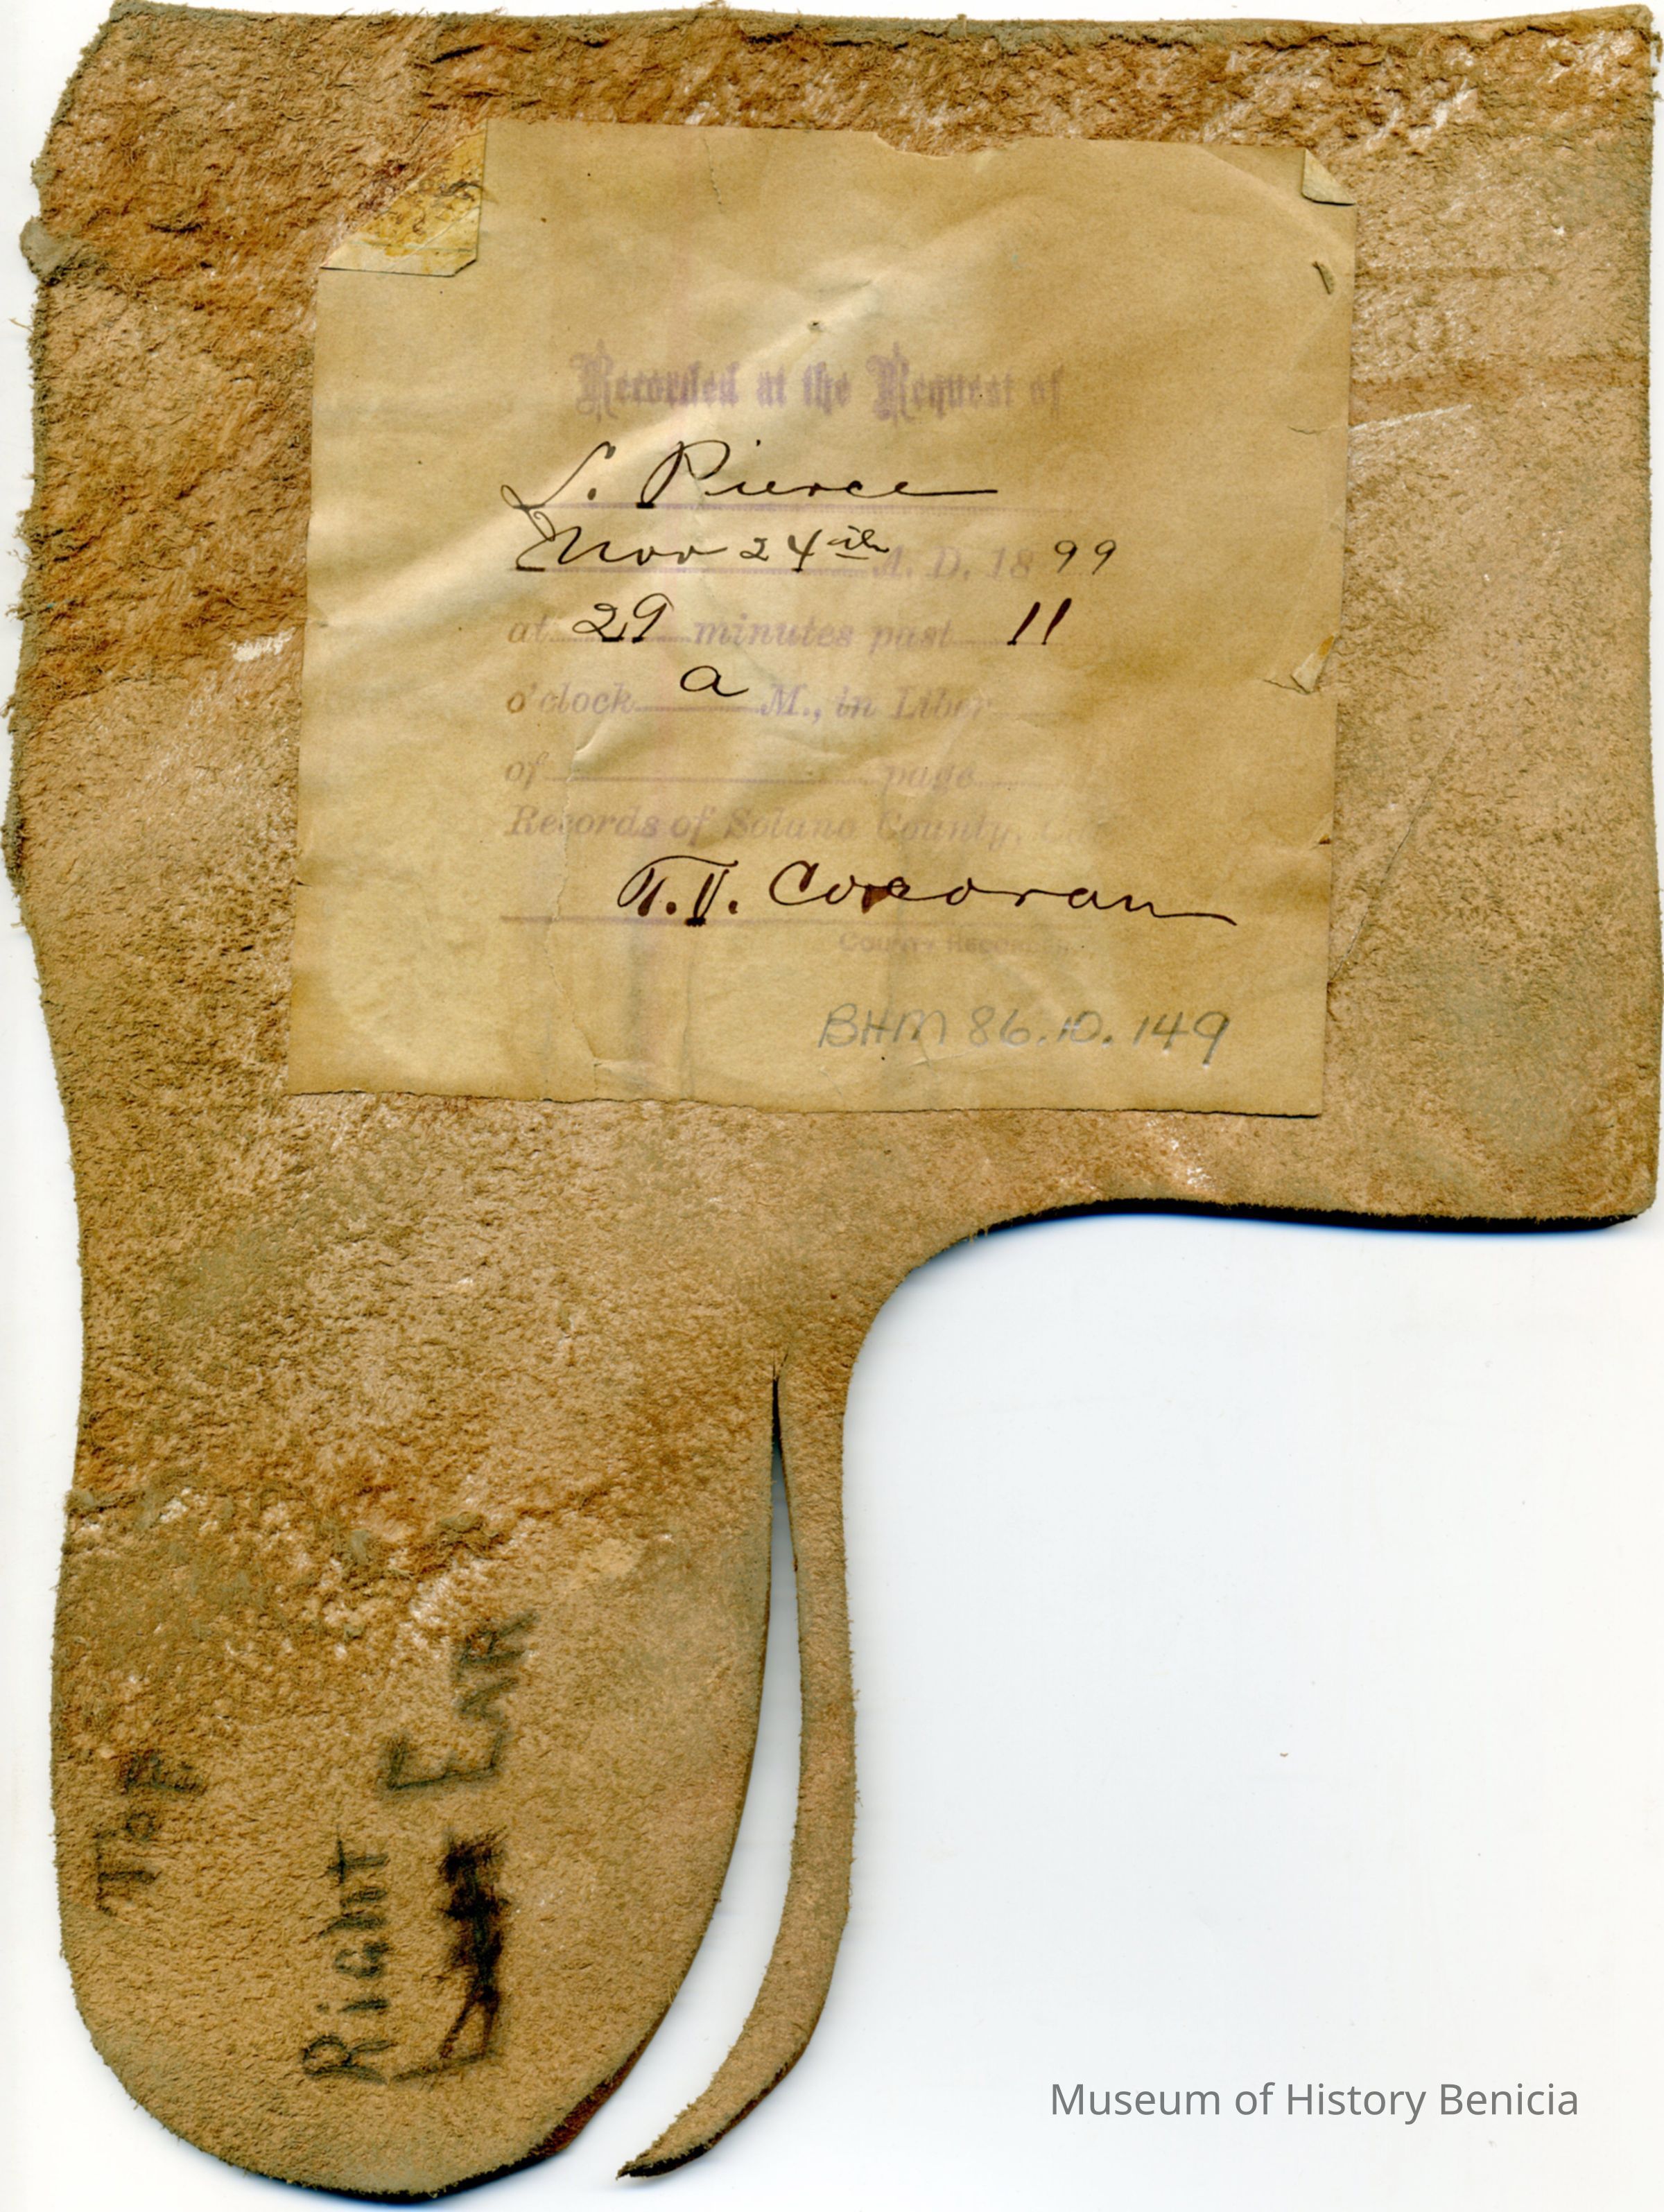 Recorded at the Request of
L. Pierce
Nov 24th A. D. 18 99
at 29 minutes past 11
o'clock a M., in Liber
of page
Records of Solano County, Cal
T. J. Corcoran
County Recorder.
BHM 86.10.149
ToP
Right
EAR
Museum of History Benicia